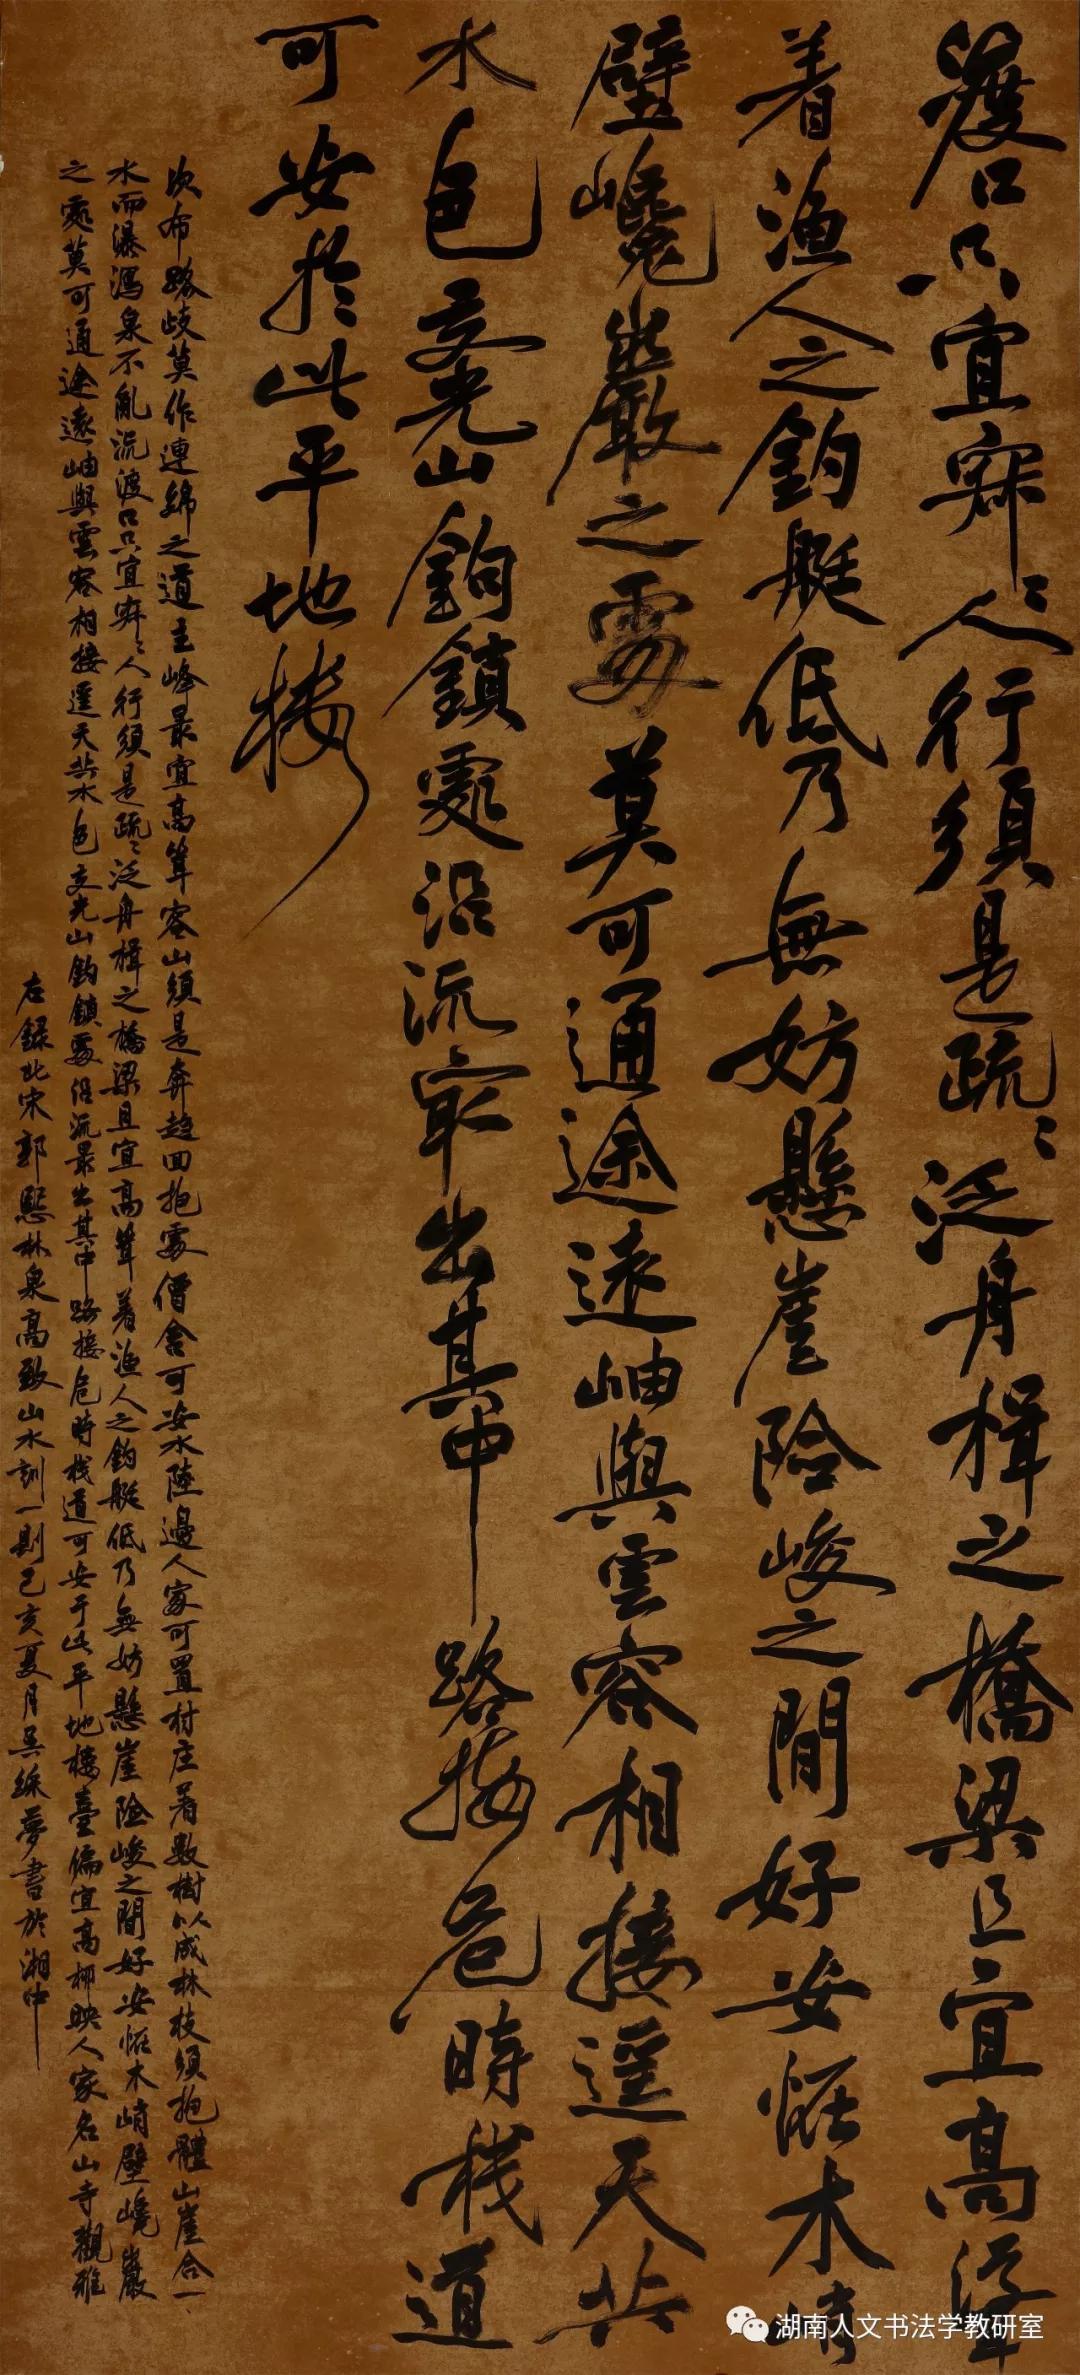 渡口只宜寂〻人行須是疏〻泛舟楫之橋梁且宜高聳
着漁人之釣艇低乃無妨懸崖險峻之間好安怪木峭
壁巉巖之處莫可通途遠岫與雲容相接遥天共
水色交光山鉤鎖處沿流最出其中路接危時栈道
可安於此平地楼
次布路歧莫作連綿之道主峰最宜高聳客山須是奔趋回抱處僧舍可安水陸邊人家可置村庄著数樹以成林枝須抱體山崖合一
水而瀑瀉泉不亂流渡口只宜寂〻人行須是疏〻泛舟楫之橋梁且宜高聳着漁人之釣艇低乃無妨懸崖險峻之間好安怪木峭壁巉巖
之處莫可通途遠岫與雲容相接遥天共水色交光山鉤鎖處沿流最出其中路接危時栈道可安于此平地楼臺偏宜高柳映人家名山寺觀雅
右録北宋郭熙林泉高致山水訓一則己亥夏月吴綵夢書於湘中
湖南人文书法学教研室